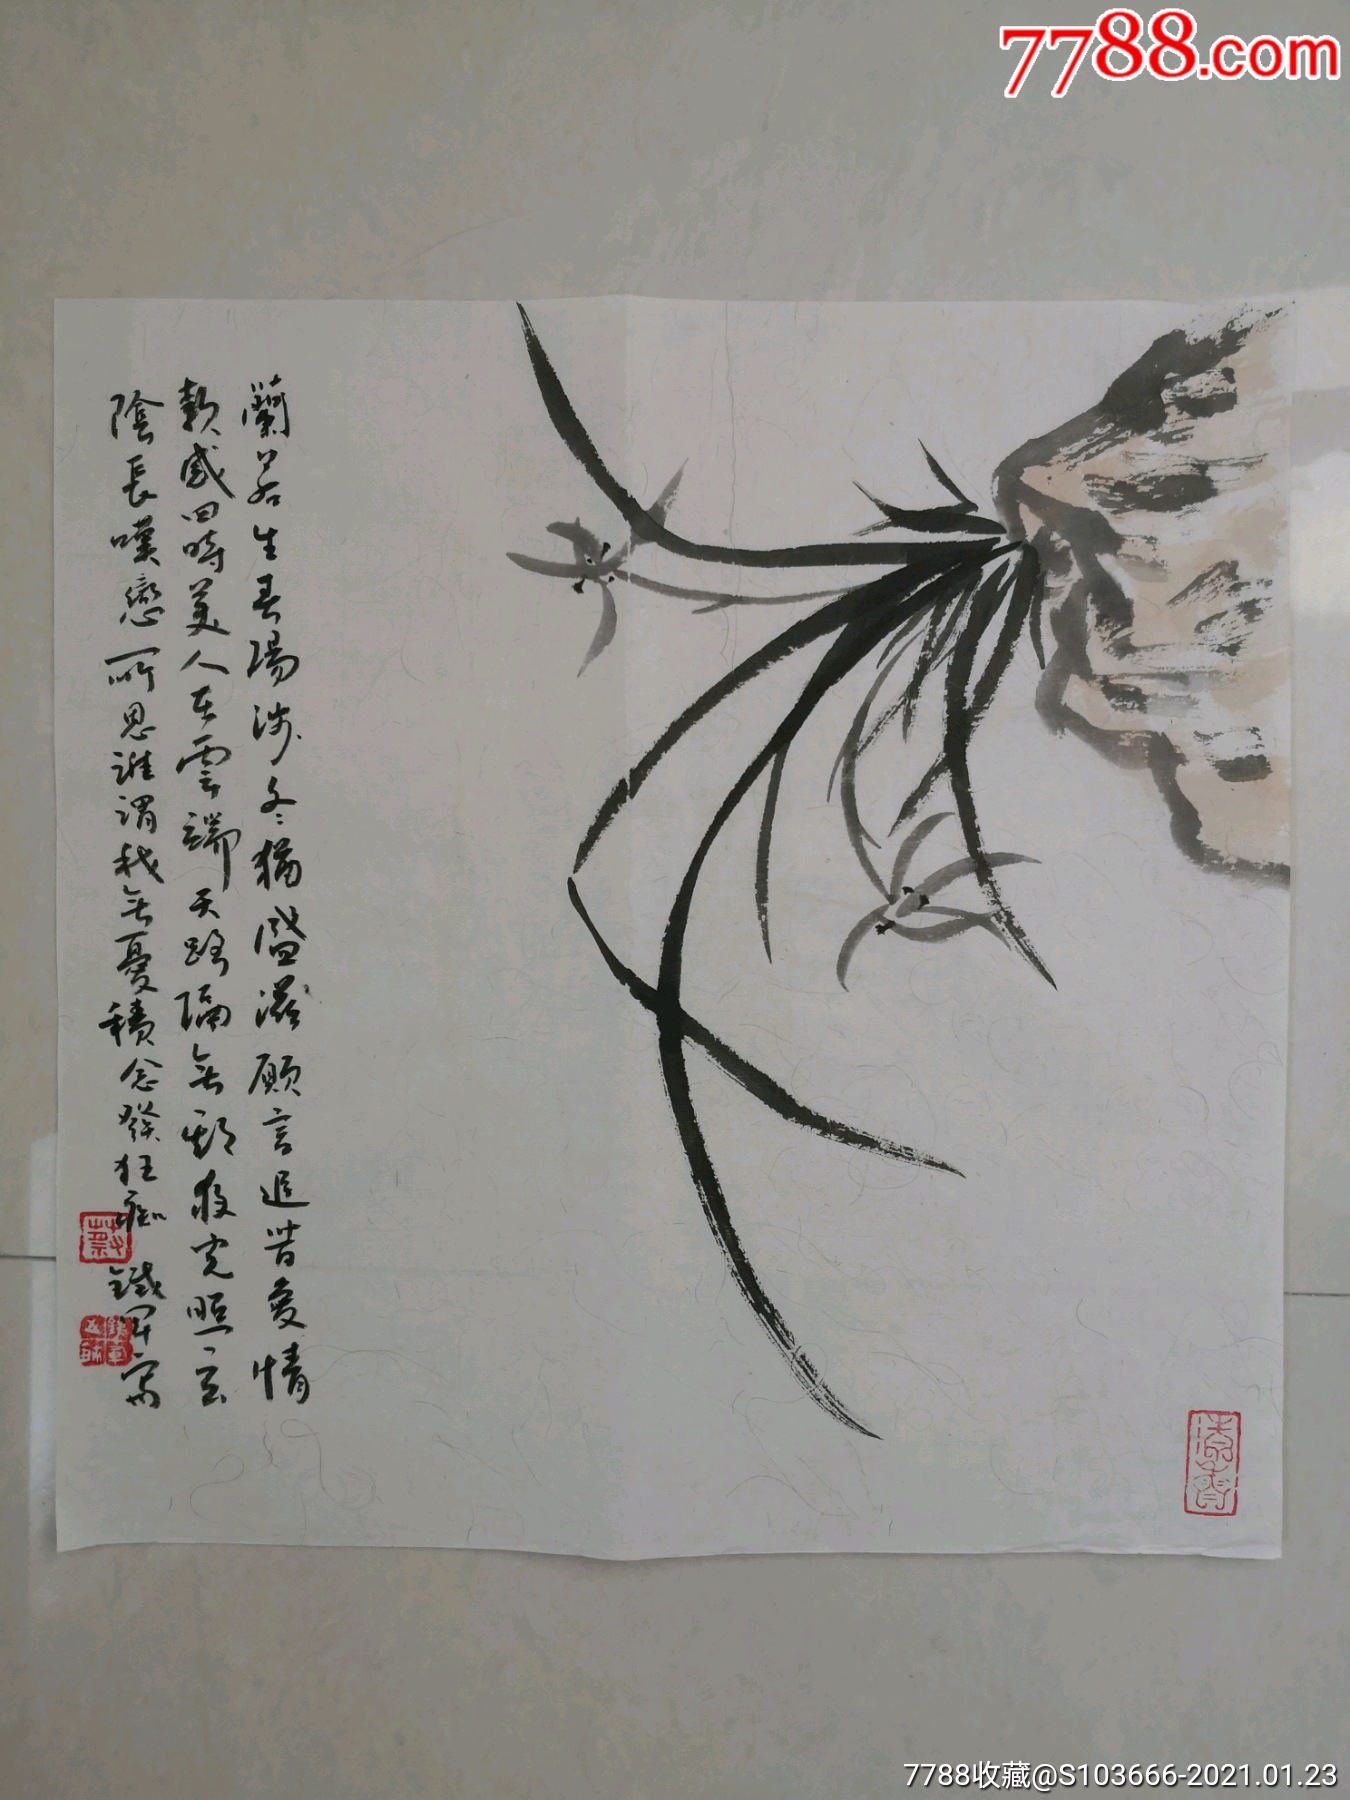 7788.com
蘭若生春陽涉冬猶盛滋願言追昔愛情
款感四時美人在雲端天路隔無期夜光照玄
陰長嘆戀所思誰謂我無憂積念發狂痴 鐵軍寫
蔡
7788收藏@S103666-2021.01.23